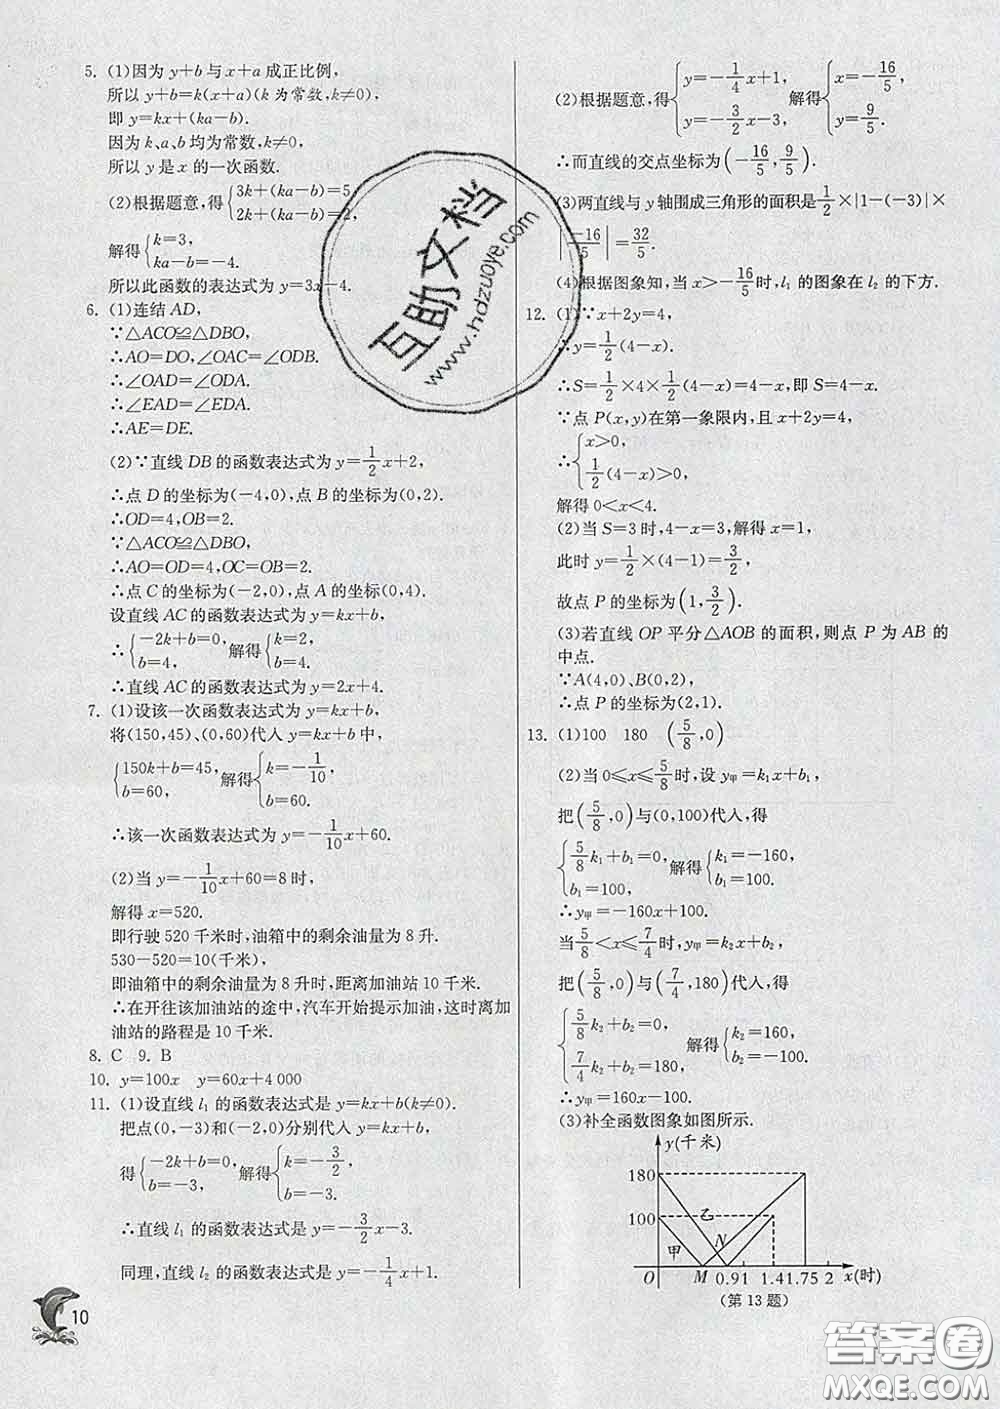 5. (1)因为 y+b 与 x+a 成正比例,
所以 y+b=k(x+a)(k 为常数,k≠0),
即 y=kx+(ka-b).
因为 k、a、b 均为常数,k≠0,
所以 y 是 x 的一次函数.
(2)根据题意,得{3k+(ka-b)=5,
2k+(ka-b)=2,
解得{k=3,
ka-b=-4.
所以此函数的表达式为 y=3x-4.
6. (1)连结 AD,
∵△ACO≌△DBO,
∴AO=DO,∠OAC=∠ODB.
∴∠OAD=∠ODA.
∴∠EAD=∠EDA.
∴AE=DE.
(2)∵直线 DB 的函数表达式为 y=1/2x+2,
∴点 D 的坐标为(-4,0),点 B 的坐标为(0,2).
∴OD=4,OB=2.
∵△ACO≌△DBO,
∴AO=OD=4,OC=OB=2.
∴点 C 的坐标为(-2,0),点 A 的坐标为(0,4).
设直线 AC 的函数表达式为 y=kx+b,
∴{-2k+b=0, 解得{k=2,
b=4. b=4.
∴直线 AC 的函数表达式为 y=2x+4.
7. (1)设该一次函数表达式为 y=kx+b,
将(150,45)、(0,60)代入 y=kx+b 中,
{150k+b=45, 解得{k=-1/10,
b=60, b=60.
∴该一次函数表达式为 y=-1/10x+60.
(2)当 y=-1/10x+60=8 时,
解得 x=520.
即行驶 520 千米时,油箱中的剩余油量为 8 升.
530-520=10(千米),
即油箱中的剩余油量为 8 升时,距离加油站 10 千米.
∴在开往该加油站的途中,汽车开始提示加油,这时离加
油站的路程是 10 千米.
8. C 9. B
10. y=100x y=60x+4 000
11. (1)设直线 l₁ 的函数表达式是 y=kx+b(k≠0).
把点(0,-3)和(-2,0)分别代入 y=kx+b,
得{-2k+b=0, 解得{k=-3/2,
b=-3, b=-3.
∴直线 l₁ 的函数表达式是 y=-3/2x-3.
同理,直线 l₂ 的函数表达式是 y=-1/4x+1.
10
(2)根据题意,得{y=-1/4x+1, 解得{x=-16/5,
y=-3/2x-3, y=9/5.
∴而直线的交点坐标为(-16/5,9/5).
(3)两直线与 y 轴围成三角形的面积是1/2×|1-(-3)|×
|-16/5|=32/5.
(4)根据图象知,当 x>-16/5时,l₁ 的图象在 l₂ 的下方.
12. (1)∵x+2y=4,
∴y=1/2(4-x).
∴S=1/2×4×1/2(4-x)=4-x,即 S=4-x.
∵点 P(x,y)在第一象限内,且 x+2y=4,
∴{x>0,
1/2(4-x)>0,
解得 0<x<4.
(2)当 S=3 时,4-x=3,解得 x=1,
此时 y=1/2×(4-1)=3/2,
故点 P 的坐标为(1,3/2).
(3)若直线 OP 平分△AOB 的面积,则点 P 为 AB 的
中点.
∵A(4,0)、B(0,2),
∴点 P 的坐标为(2,1).
13. (1)100 180 (5/8,0)
(2)当 0≤x≤5/8时,设 y甲=k₁x+b₁,
把(5/8,0)与(0,100)代入,得
{5/8k₁+b₁=0, 解得{k₁=-160,
b₁=100, b₁=100.
∴y甲=-160x+100.
当5/8<x≤7/4时,y甲=k₂x+b₂,
把(5/8,0)与(7/4,180)代入,得
{5/8k₂+b₂=0, 解得{k₂=160,
7/4k₂+b₂=180, b₂=-100.
∴y甲=160x-100.
(3)补全函数图象如图所示.
y(千米)
180
100
乙
甲
N
O M 0.91 1.4 1.75 2 x(时)
(第 13 题)
互助文档
www.hdzuoye.com
答案圈
MXQE.COM